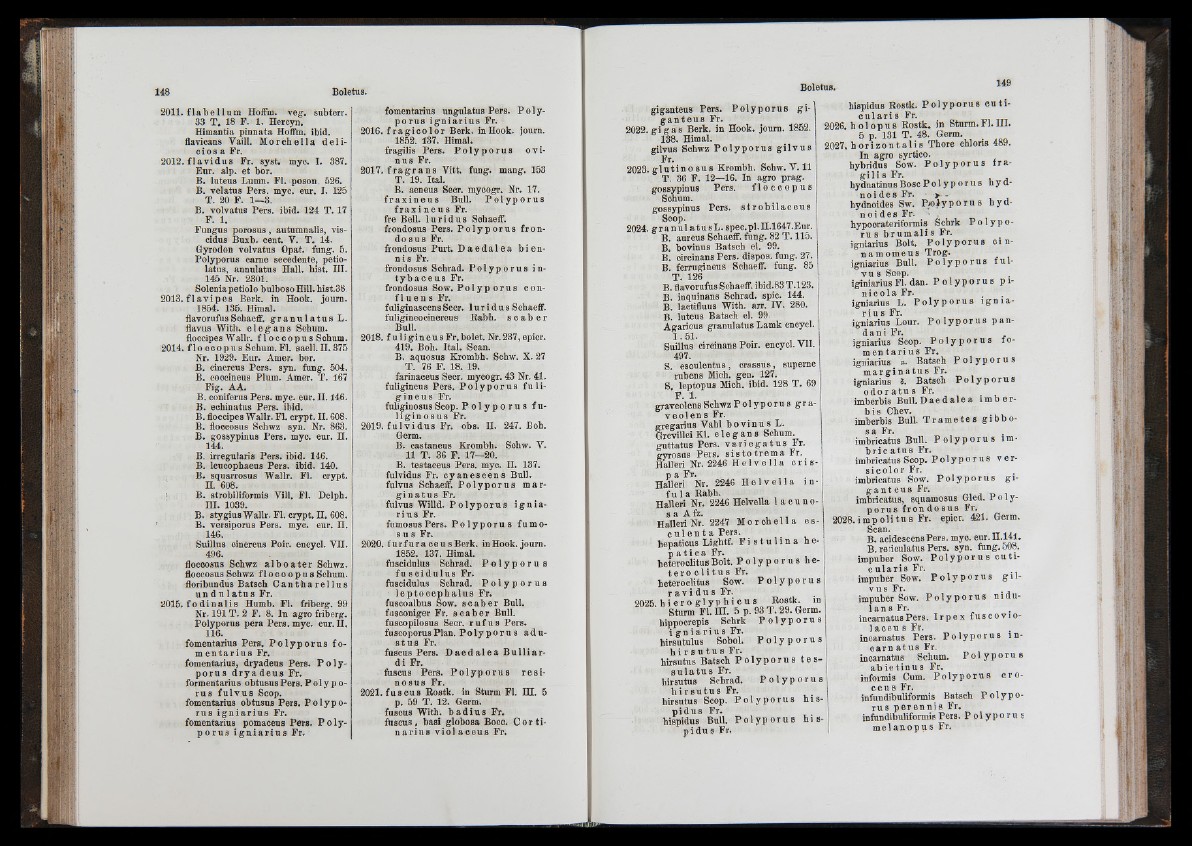 148
Boletus.
2011. flabellum Hoffm. veg. subterr.
33 T. 18 F. 1. Hercyn.
Himantia pinnata Hoffm. ibid.
flavicans Vaill. Morchella deli-
ciosa Fr.
2012. flavidus Fr. syst. myc. I. 387.
Eur. alp. et bor.
B. luteus Lumn. Fl. poson. 526.
B. velatus Pers. myc. eur. I. 125
T. 20 F. 1—3.
B. volvatus Pers. ibid. 124 T. 17
F. 1.
Fungus porosus, autumnalis, vis-
cidus Buxb. cent. V. T. 14.
Gyrodon volvatus Opat. fung. 5.
Polyporus carne secedente, petio-
latus, annulatus Hall. hist. III.
145 Nr. 2301.
Solenia petiolo bulboso Hill. hist. 38
2013. flavipes Berk. in Hook. journ.
1854. 135. Himal.
flavorufus Schaeff. granulatus L.
flavus With. elegans Schum.
floccipes Wallr. floccopus Schum.
2014. floccopus Schum. Fl. saell. II. 375
Nr. 1929. Eur. Amer. bor.
B. cinereus Pers. syn. fung. 504.
B. coccineus Plum. Amer. T. 167
Fig. AA.
B. coniferus Pers. myc. eur. II. 146.
B. echinatus Pers. ibid.
B. floccipes Wallr. Fl. crypt. II. 608.
B. floccosus Schwz syn. Nr. 863.
B. gossypinus Pers. myc. eur. II.
144.
B. irregularis Pers. ibid. 146.
B. leucophaeus Pers. ibid. 140.
B. squarrosus Wallr. Fl. crypt.
II. 608.
B. strobiliformis Vill. Fl. Delph.
III. 1039.
B. stygius Wallr. Fl. crypt. II. 608.
B. versiporus Pers. myc. eur. II.
146.
Suillus cinereus Poir. encycl. VII.
496.
floccosus Schwz alboater Schwz.
floccosus Schwz floccopus Schum.
floribundus Batsch Cantharellus
undulatus Fr.
2015. fodinalis Humb. Fl. friberg. 99
Nr. 191 T. 2 F. 8. In agro friberg.
Polyporus pera Pers. myc. eur. II.
116.
fomentarius Pers. Polyporus fo-
mentarius Fr.
fomentarius, dryadeus Pers. Poly-
porus dryadeus Fr.
formentarius obtusus Pers. Polypo-
rus fulvus Scop.
fomentarius obtusus Pers. Polypo-
rus igniarius Fr.
fomentarius pomaceus Pers. Poly-
porus igniarius Fr.
fomentarius ungulatus Pers. Poly-
porus igniarius Fr.
2016. fragicolor Berk. in Hook. journ.
1852. 137. Himal.
fragilis Pers. Polyporus ovi-
nus Fr.
2017. fragrans Vitt. fung. mang. 153
T. 19. Ital.
B. aeneus Secr. mycogr. Nr. 17.
fraxineus Bull. Polyporus
fraxineus Fr.
fre Bell. luridus Schaeff.
frondosus Pers. Polyporus fron-
dosus Fr.
frondosus Purt. Daedalea bien-
nis Fr.
frondosus Schrad. Polyporus in-
tybaceus Fr.
frondosus Sow. Polyporus con-
fluens Fr.
fuliginascens Secr. luridus Schaeff.
fuligineocinereus Rabh. scaber
Bull.
2018. fuligineus Fr. bolet. Nr. 237, epicr.
419. Boh. Ital. Scan.
B. aquosus Krombh. Schw. X. 27
T. 76 F. 18. 19.
farinaceus Secr. mycogr. 43 Nr. 41.
fuligineus Pers. Polyporus fuli-
gineus Fr.
fuliginosus Scop. Polyporus fu-
liginosus Fr.
2019. fulvidus Fr. obs. II. 247. Boh.
Germ.
B. castaneus Krombh. Schw. V.
11 T. 36 F. 17—20.
B. testaceus Pers. myc. II. 137.
fulvidus Fr. cyanescens Bull.
fulvus Schaeff. Polyporus mar-
ginatus Fr.
fulvus Willd. Polyporus ignia-
rius Fr.
fumosus Pers. Polyporus fumo-
sus Fr.
2020. furfuraceus Berk. in Hook. journ.
1852. 137. Himal.
fuscidulus Schrad. Polyporus
fuscidulus Fr.
fuscidulus Schrad. Polyporus
leptocephalus Fr.
fuscoalbus Sow. scaber Bull.
fusconiger Fr. scaber Bull.
fuscopilosus Secr. rufus Pers.
fuscoporus Plan. Polyporus adu-
stus Fr.
fuscus Pers. Daedalea Bulliar-
di Fr.
fuscus Pers. Polyporus resi-
nosus Fr.
2021. fuscus Rostk. in Sturm Fl. III. 5
p. 59 T. 12. Germ.
fuscus With. badius Fr.
fuscus, basi globosa Bocc. Corti-
narius violaceus Fr.
Boletus.
149
giganteus Pers. Polyporus gi-
ganteus Fr.
2022. gigas Berk. in Hook. journ. 1852.
138. Himal.
gilvus Schwz Polyporus gilvus
Fr.
2023. glutinosus Krombh. Schw. V. 11
T. 36 F. 12—16. In agro prag.
gossypinus Pers. floccopus
Schum.
gossypinus Pers. strobilaceus
Scop.
2024. granulatus L. spec. pl. II. 1647. Eur.
B. aureus Schaeff. fung. 82 T. 115.
B. bovinus Batsch el. 99.
B. circinans Pers. dispos. fung. 27.
B. ferrugineus Schaeff. fung. 85
T. 126
B. flavorufus Schaeff. ibid. 83 T. 123.
B. inquinans Schrad. spic. 144.
B. lactifluus With. arr. IV. 280.
B. luteus Batsch el. 99
Agaricus granulatus Lamk encycl.
I. 51.
Suillus circinans Poir. encycl. VII.
497.
S. esculentus, crassus, superne
rubens Mich. gen. 127.
S. leptopus Mich. ibid. 128 T. 69
F. 1.
graveolens Schwz Polyporus gra-
veolens Fr.
gregarius Vahl bovinus L.
Grevillei Kl. elegans Schum.
guttatus Pers. variegatus Fr.
gyrosus Pers. sistotrema Fr.
Halleri Nr. 2246 Helvella cris-
pa Fr.
Halleri Nr. 2246 Helvella in-
fula Rabh.
Halleri Nr. 2246 Helvella lacuno-
sa Afz.
Halleri Nr. 2247 Morchella es-
culenta Pers.
hepaticus Lightf. Fistulina he-
patica Fr.
heteroclitus Bolt. Polyporus he-
teroclitus Fr.
heteroclitus Sow. Polyporus
ravidus Fr.
2025. hieroglyphicus Rostk. in
Sturm Fl. III. 5 p. 93 T. 29. Germ.
hippocrepis Schrk Polyporus
igniarius Fr.
hirsutulus Sobol. Polyporus
hirsutus Fr.
hirsutus Batsch Polyporus tes-
sulatus Fr.
hirsutus Schrad. Polyporus
hirsutus Fr.
hirsutus Scop. Polyporus his-
pidus Fr.
hispidus Bull. Polyporus his-
pidus Fr.
hispidus Rostk. Polyporus cuti-
cularis Fr.
2026. holopus Rostk. in Sturm. Fl. III.
5 p. 131 T. 48. Germ.
2027. horizontalis Thore chloris 489.
In agro syrtico.
hybridus Sow. Polyporus fra-
gilis Fr.
hydnatinus Bosc Polyporus hyd-
noides Fr.
hydnoides Sw. Polyporus hyd-
noides Fr.
hypocrateriformis Schrk Polypo-
rus brumalis Fr.
igniarius Bolt. Polyporus cin-
namomeus Trog.
igniarius Bull. Polyporus ful-
vus Scop.
iginiarius Fl. dan. Polyporus pi-
nicola Fr.
igniarius L. Polyporus ignia-
rius Fr.
igniarius Lour. Polyporus pan-
dani Fr.
igniarius Scop. Polyporus fo-
mentarius Fr.
igniarius a. Batsch Polyporus
marginatus Fr.
igniarius b. Batsch Polyporus
odoratus Fr.
imberbis Bull. Daedalea imber-
bis Chev.
imberbis Bull. Trametes gibbo-
sa Fr.
imbricatus Bull. Polyporus im-
bricatus Fr.
imbricatus Scop. Polyporus ver-
sicolor Fr.
imbricatus Sow. Polyporus gi-
ganteus Fr.
imbricatus, squamosus Gled. Poly-
porus frondosus Fr.
2028. impolitus Fr. epicr. 421. Germ.
Scan.
B. acidescens Pers. myc. eur. II. 141.
B. reticulatus Pers. syn. fung. 508.
impuber Sow. Polyporus cuti-
cularis Fr.
impuber Sow. Polyporus gil-
vus Fr.
impuber Sow. Polyporus nidu-
lans Fr.
incarnatus Pers. Irpex fuscovio-
laceus Fr.
incarnatus Pers. Polyporus in-
carnatus Fr.
incarnatus Schum. Polyporus
abietinus Fr.
informis Cum. Polyporus cro-
ceus Fr.
infundibuliformis Batsch Polypo-
rus perennis Fr.
infundibuliformis Pers. Polyporus
melanopus Fr.